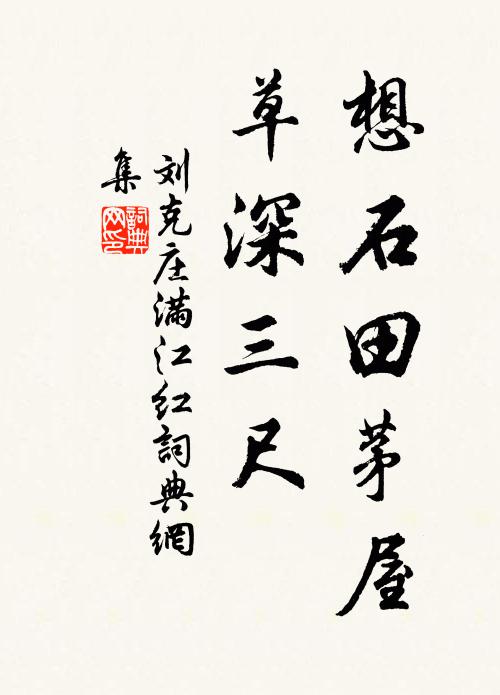 想石田茅屋
草深三尺
刘克庄满江红詞典網
集
詞典
网印